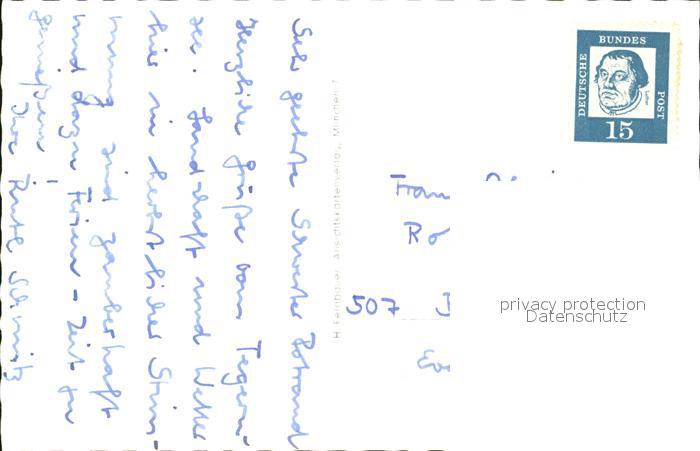 Sehr geehrte Schwester Rotraud
Herzliche Grüße vom Tegern-
see. Landschaft und Wetter
hier in herbstlicher Stim-
mung sind zauberhaft
und dazu Ferien - Zeit zu
genießen!
Ihre Ruth Schmitz
H. Fernbacher, Ansichtskartenverlag, München
DEUTSCHE BUNDES POST
Luther
15
Frau
507
privacy protection
Datenschutz